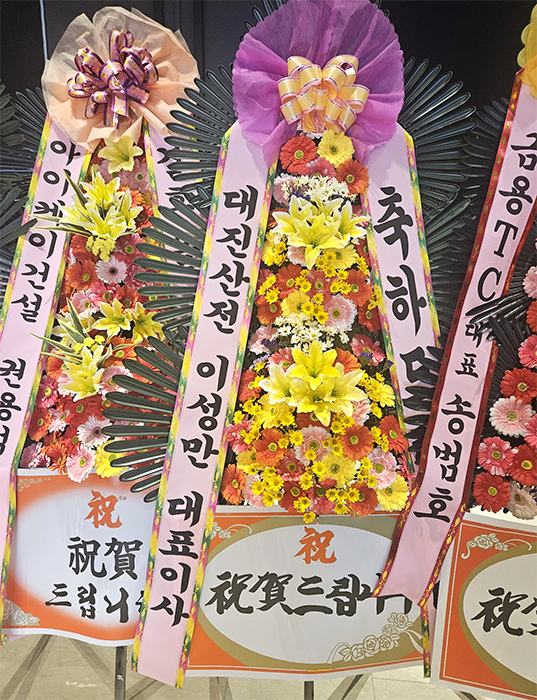 아이케이건설 권용성
대진산전 이성만 대표이사
축하
금용TC
대표 송범호
祝
祝賀
드립니
祝
祝賀드립
祝